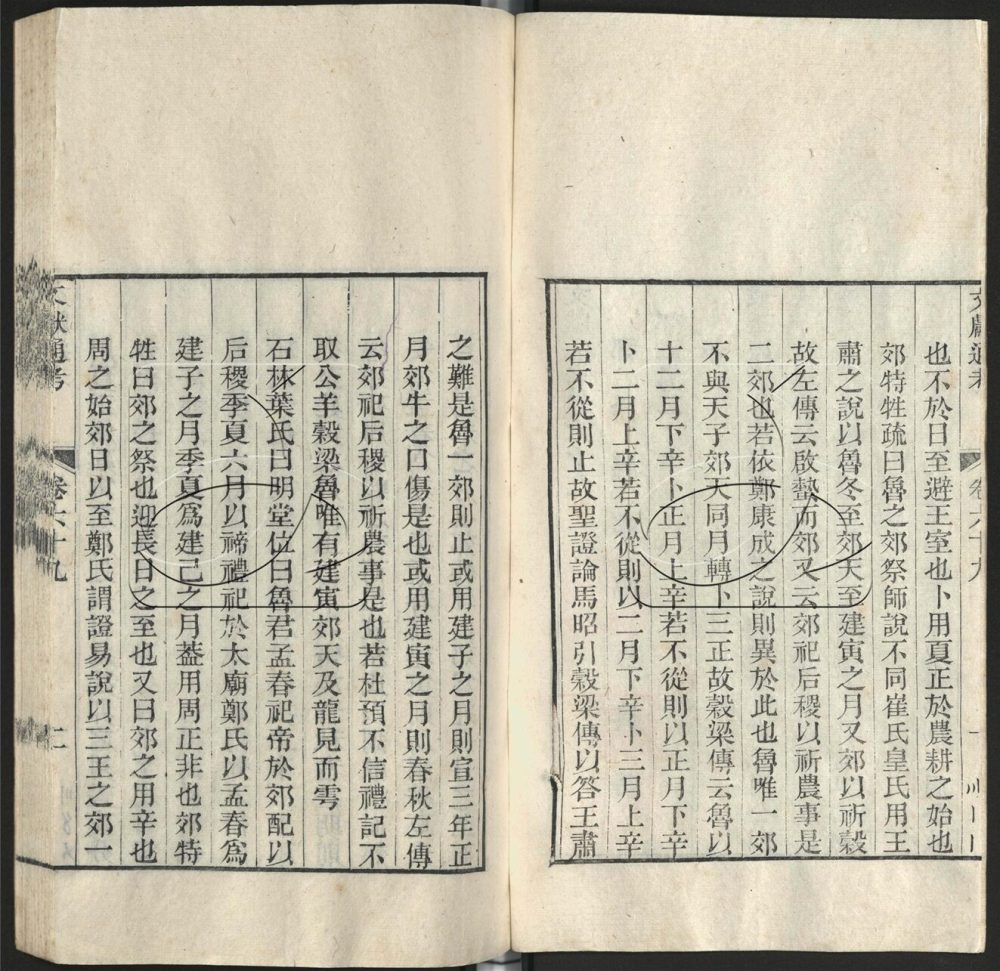 也不於日至避王室也卜用夏正於農耕之始也
郊特牲疏曰魯之郊祭師說不同崔氏皇氏用王
肅之說以魯冬至郊天至建寅之月又郊以祈穀
故左傳云啟蟄而郊又云郊祀后稷以祈農事是
二郊也若依鄭康成之說則異於此也魯唯一郊
不與天子郊天同月轉卜三正故穀梁傳云魯以
十二月下辛卜正月上辛若不從則以正月下辛
卜二月上辛若不從則以二月下辛卜三月上辛
若不從則止故聖證論馬昭引穀梁傳以答王肅
之難是魯一郊則止或用建子之月則宣三年正
月郊牛之口傷是也或用建寅之月則春秋左傳
云郊祀后稷以祈農事是也若杜預不信禮記不
取公羊穀梁魯唯有建寅郊天及龍見而雩
石林葉氏曰明堂位曰魯君孟春祀帝於郊配以
后稷季夏六月以禘禮祀於太廟鄭氏以孟春爲
建子之月季夏爲建己之月葢用周正非也郊特
牲曰郊之祭也迎長日之至也又曰郊之用辛也
周之始郊日以至鄭氏謂證易說以三王之郊一
文獻通考 卷六十九 二